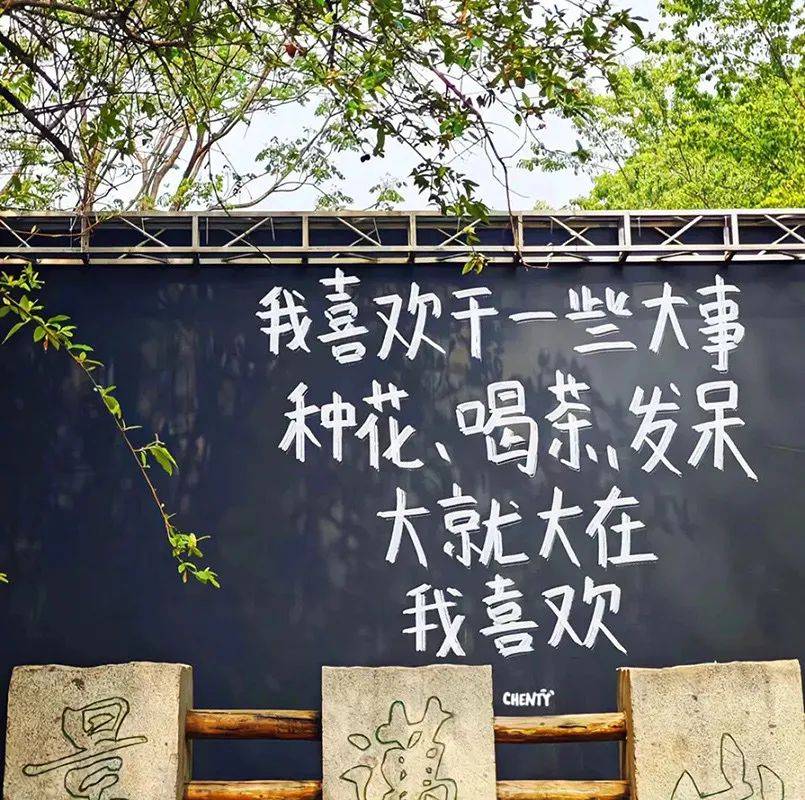 我喜欢干一些大事
种花、喝茶、发呆
大就大在
我喜欢
CHENTY
景 满 山